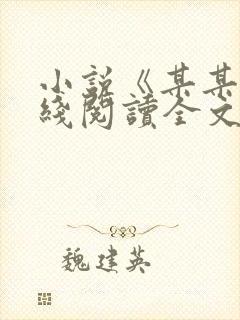 小説《某某
綫閱讀全文
魏建英